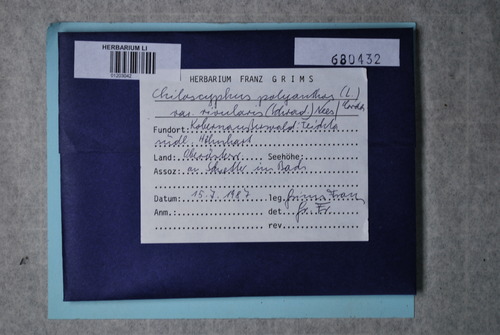 HERBARIUM LI
01203042
680432
HERBARIUM FRANZ GRIMS
Chiloscyphus polyanthos (L.) Corda
var. rivularis (Schrad.) Nees
Fundort: Kobernaußerwald
südl.
Land: Oberösterr. Seehöhe:
Assoz: an im Bach
Datum: 15.7.1987 leg. Grims Franz
Anm.: det. Gr. Fr.
rev.